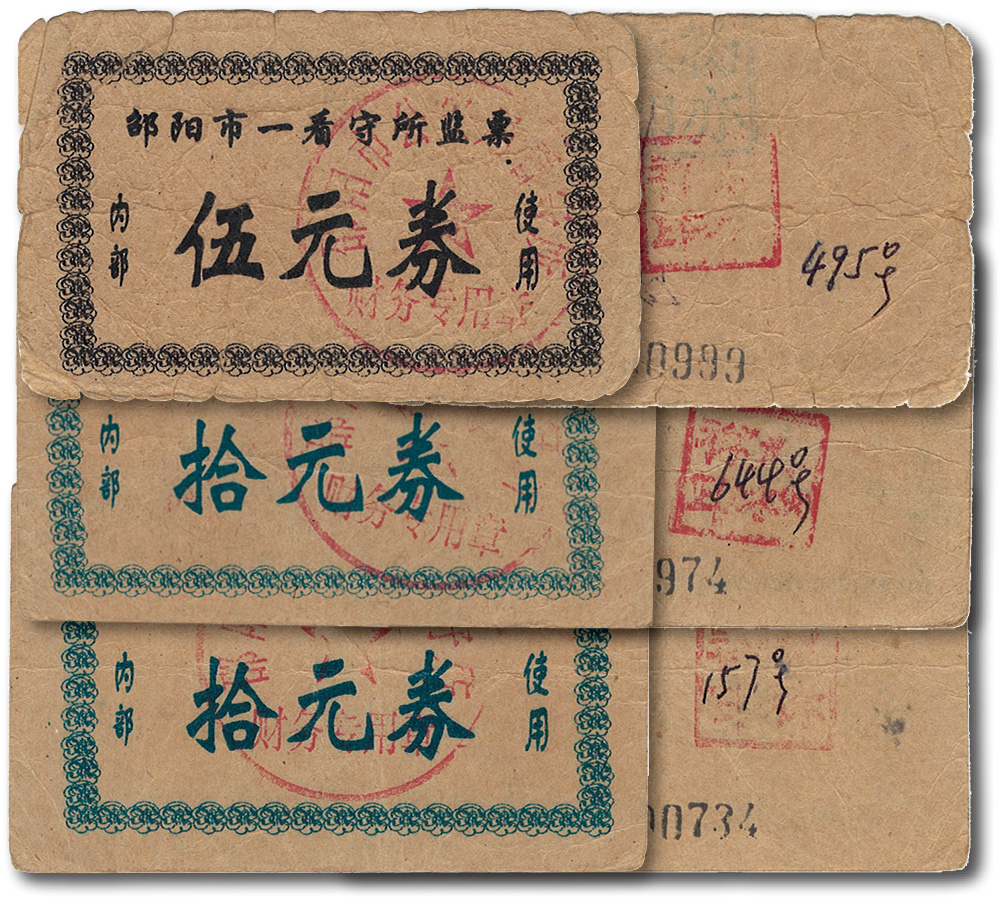 邵阳市一看守所监票
内部
伍元券
使用
财务专用章
495号
0999
内部
拾元券
使用
财务专用章
644号
974
内部
拾元券
使用
财务专用章
157号
00734